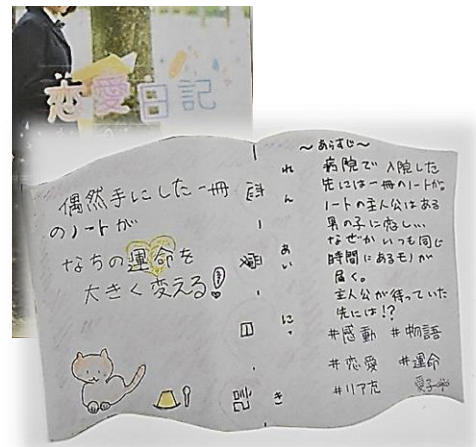 恋愛日記
偶然手にした一冊
のノートが
なちの運命を
大きく変える!
れんあいにっき
〜あらすじ〜
病院で入院した
先には一冊のノートが
ノートの主人公はある
男の子に恋し…
なぜかいつも同じ
時間にあるモノが
届く。
主人公が待っていた
先には!?
#感動 #物語
#恋愛 #運命
#リア充